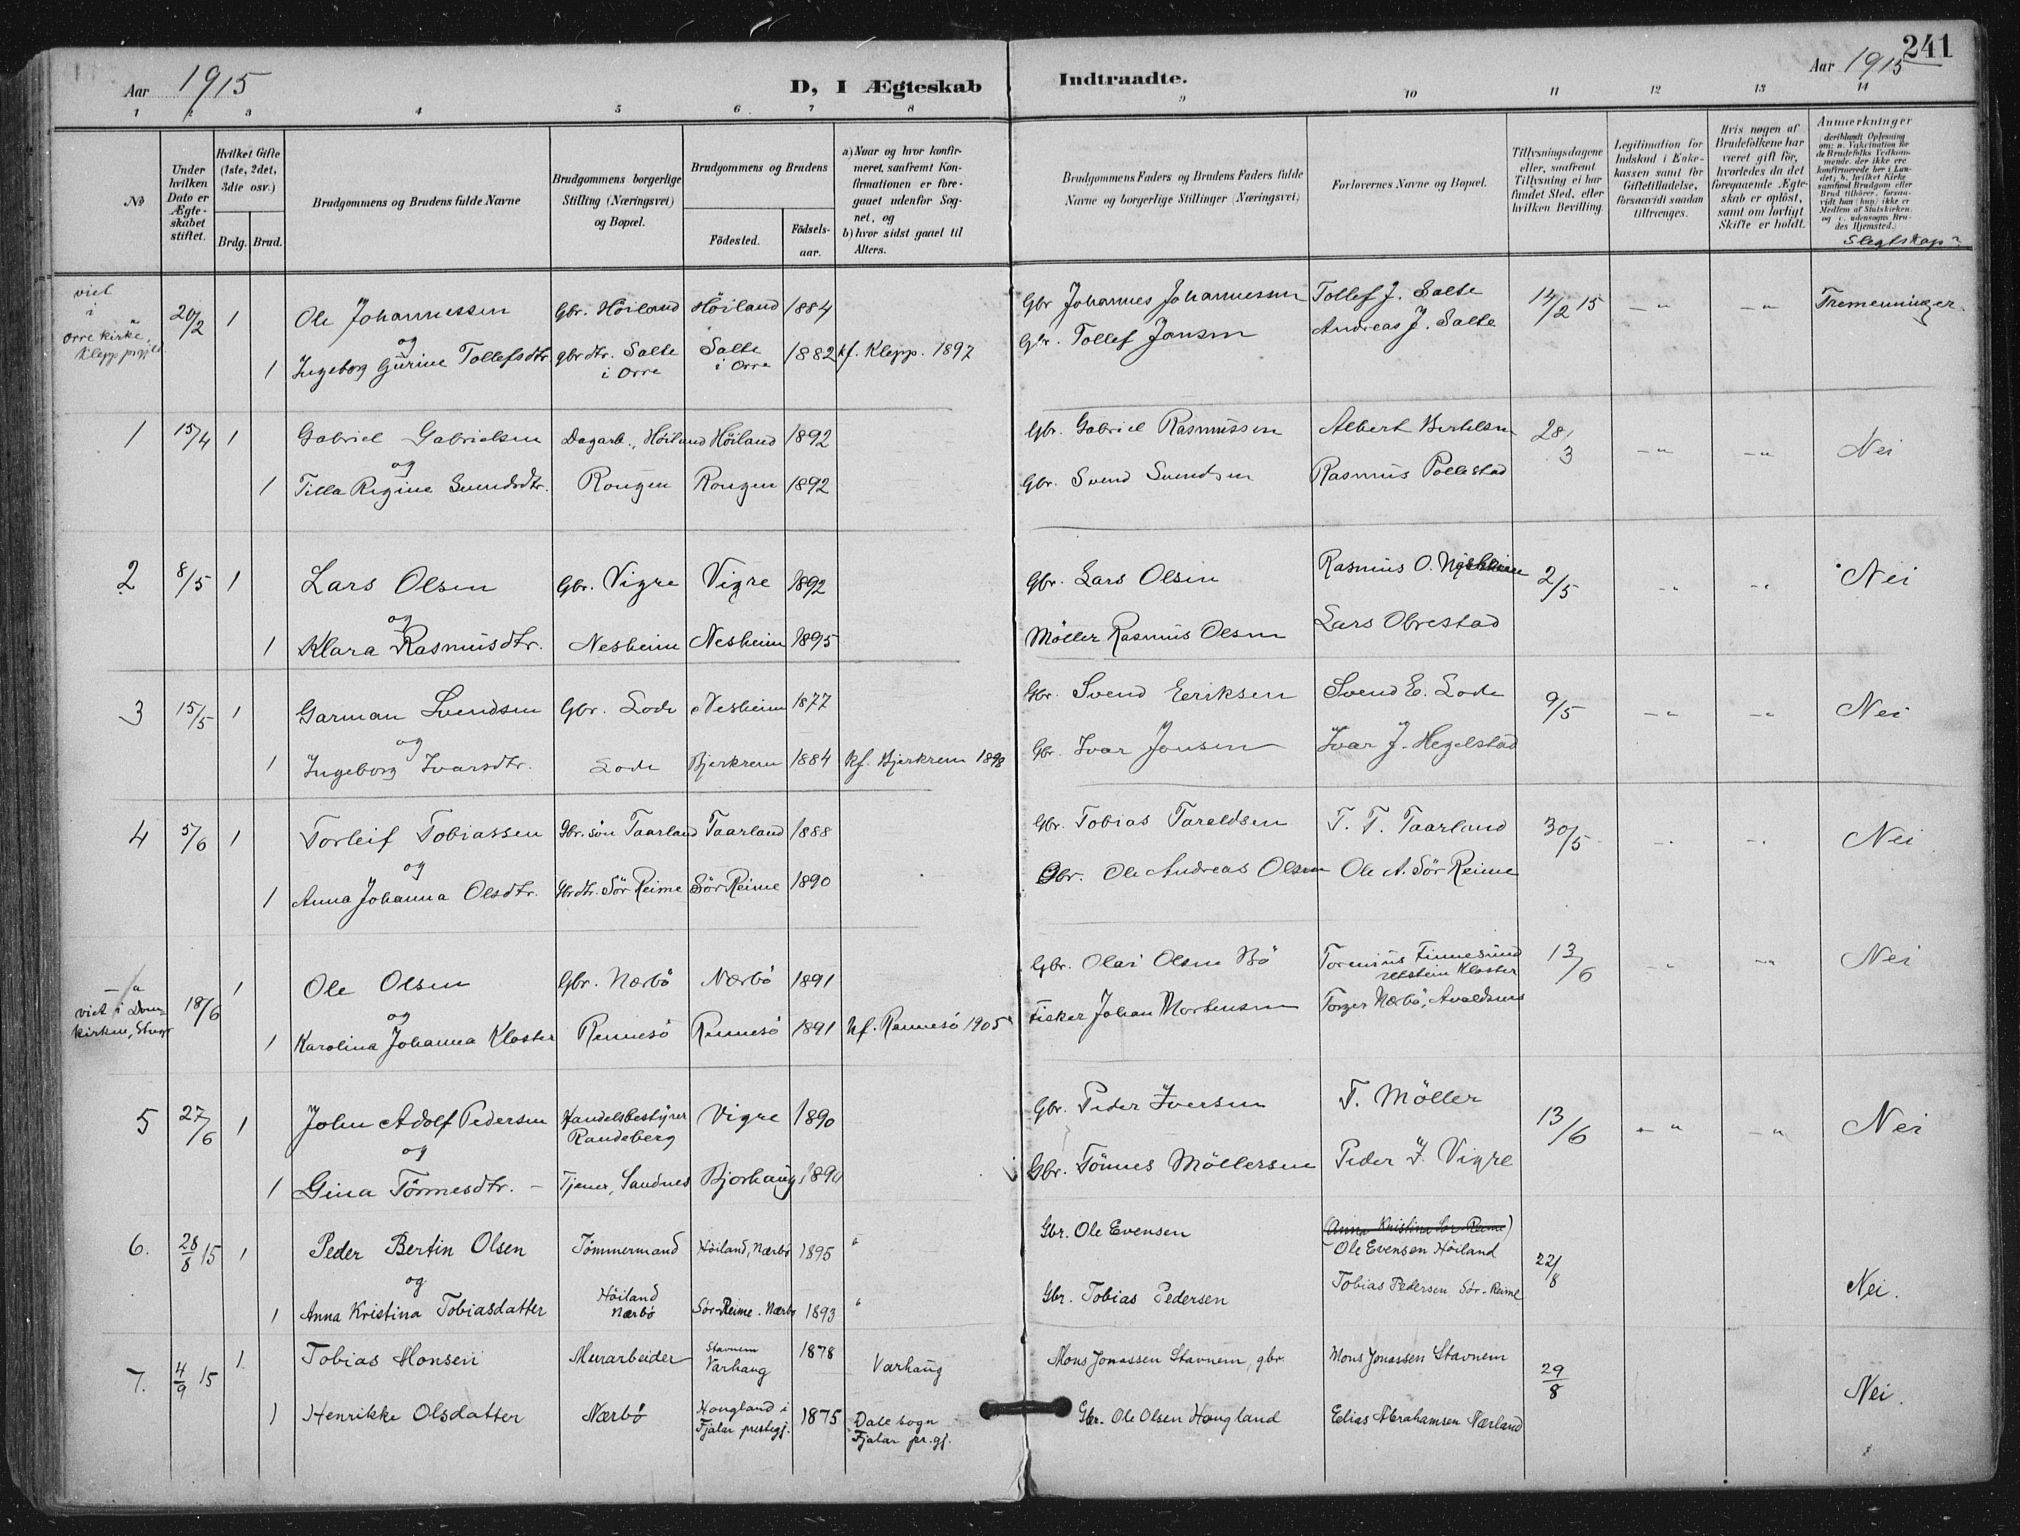 241
Aar 1915
D, I Ægteskab Indtraadte.
Aar 1915
1 2 3 4 5 6 7 8 9 10 11 12 13 14
No
Under hvilken Dato er Ægteskabet stiftet.
Hvilket Gifte (1ste, 2det, 3die osv.)
Brdg. Brud.
Brudgommens og Brudens fulde Navne
Brudgommens borgerlige Stilling (Næringsvei) og Bopæl.
Brudgommens og Brudens
Födested.
Födselsaar.
a) Naar og hvor konfirmeret, saafremt Konfirmationen er foregaaet udenfor Sognet, og
b) hvor sidst gaaet til Alters.
Brudgommens Faders og Brudens Faders fulde Navne og borgerlige Stillinger (Næringsvei)
Forlovernes Navne og Bopæl.
Tillysningsdagene eller, saafremt Tillysning ei har fundet Sted, efter hvilken Bevilling.
Legitimation for Indskud i Enkekassen samt for Giftetilladelse, forsaavidt saadan tiltrænges.
Hvis nogen af Brudefolkene har været gift för, hvorledes da det foregaaende Ægteskab er oplöst, samt om lovligt Skifte er holdt.
Anmærkninger
Slegtskap?
viet i Orre kirke, Klepp prgjld
20/2 1 Ole Johannessen Gbr. Höiland Höiland 1884 Gbr Johannes Johannessen Tollef J. Salte 14/2 15 -"- -"- Tremenninger.
og
1 Ingeborg Gurine Tollefsdtr. gbrdtr. Salte i Orre Salte i Orre 1882 kf. Klepp. 1897 Gbr. Tollef Jonsen Andreas J. Salte
1 15/4 1 Gabriel Gabrielsen Dagarb., Höiland Höiland 1892 Gbr. Gabriel Rasmussen Albert Bertelsen 28/3 -"- -"- Nei
og
1 Tilla Regine Svendsdtr. Rongen Rongen 1892 Gbr. Svend Svendsen Rasmus Pollestad
2 8/5 1 Lars Olsen Gbr. Vigre Vigre 1892 Gbr. Lars Olsen Rasmus O. 2/5 -"- -"- Nei
og
1 Klara Rasmusdtr. Nesheim Nesheim 1895 Möller Rasmus Olsen Lars Obrestad
3 15/5 1 Garman Svendsen Gbr. Lode Nesheim 1877 Gbr. Svend Eeriksen Svend E. Lode 9/5 -"- -"- Nei
og
1 Ingeborg Ivarsdtr. Lode Bjerkrem 1884 kf. Bjerkrem 1898 Gbr. Ivar Jonsen Ivar J. Hegelstad
4 5/6 1 Torleif Tobiassen Gbr. sön Taarland Taarland 1888 Gbr. Tobias Tareldsen T. T. Taarland 30/5 -"- -"- Nei
og
1 Anna Johanna Olsdtr. Gbrdtr. Sör Reime Sör Reime 1890 Gbr. Ole Andreas Olsen Ole A. Sör Reime
-"- viet i Domkirken, Stvgr
18/6 1 Ole Olsen Gbr. Nærbö Nærbö 1891 Gbr. Olai Olsen Bö Finnesand Utstein Kloster 13/6 -"- -"- Nei
og
1 Karolina Johanna Kloster Rennesö Rennesö 1891 kf. Rennesö 1905 Fisker Johan Mortensen Torger Nærbö, Avaldsnes
5 27/6 1 John Adolf Pedersen Handelsbestyrer Randeberg Vigre 1890 Gbr. Peder Iversen T. Möller 13/6 -"- -"- Nei
og
1 Gina Tönnesdtr. - Tjener, Sandnes Bjorhaug 1890 Gbr. Tönnes Möllersen Peder I. Vigre
6. 28/8 15 1 Peder Bertin Olsen Tömmermand Höiland, Nærbö 1895 " Gbr. Ole Evensen (Anna Kristina Sör-Reime) Ole Evensen Höiland 22/8 Nei.
og
1 Anna Kristina Tobiasdatter Höiland Nærbö Sör-Reime. Nærbö 1893 " Gbr. Tobias Pedersen Tobias Pedersen Sör-Reime
7. 4/9 15 1 Tobias Monsen Murarbeider Stavnem Varhaug 1878 Varhaug Mons Jonassen Stavnem, gbr. Mons Jonassen Stavnem 29/8 Nei.
1 Henrikke Olsdatter Nærbö Hougland i Fjalar prestegj. 1875 Dale sogn Fjalar pr.gj. Gbr. Ole Olsen Hougland Edias Abrahamsen Nærland